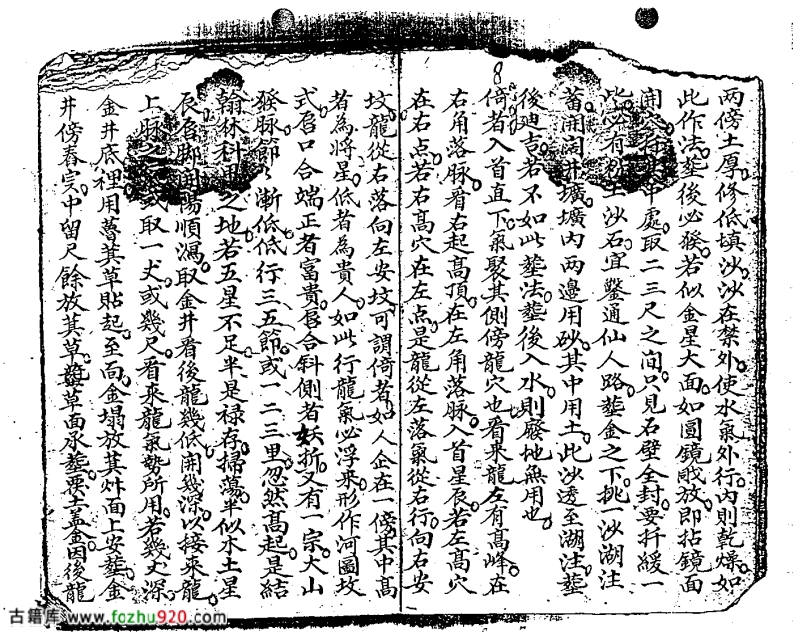 两傍土厚修低填沙沙在禁外使水氣外行内則乾燥如
此作法塟後必發若似金星大面如圓鏡戝放即拈鏡面
開 中處取二三尺之间只見石壁全封要扦緩一
些必有 土沙石宜鑿通仙人路塟金之下挑一沙湖注
蓄開濶井壙壙内两邊用砂其中用土此沙透至湖注塟
後廸吉若不如此塟法塟後入水則廢地無用也
8
倚者入首直下氣聚其側傍龍穴也看來龍左有髙峰在
右角落脉看右起髙頂在左角落脉入首星辰若左髙穴
在右点若右髙穴在左点是龍從左落氣從右行向右安
坟龍從右落向左安坟可謂倚者如人企在一傍其中髙
者為將星低者為貴人如此行龍氣必浮來形作河圖坟
式唇口合端正者富貴唇合斜側者妖折又有一宗大山
發脉節〻漸低低行三五節或一二三里忽然髙起是結
翰林科甲之地若五星不足半是禄存掃蕩半似水土星
辰名脚開陽順瀉取金井看後龍幾低開幾深以接來龍
上脉之 或取一丈或幾尺看來龍氣勢所用若幾丈深
金井底裡用 萁草貼起至面金塌放萁艸面上安塟金
井傍舂 中留尺餘放萁草 草面承塟要土盖金因後龍
古籍库 www.fozhu920.com